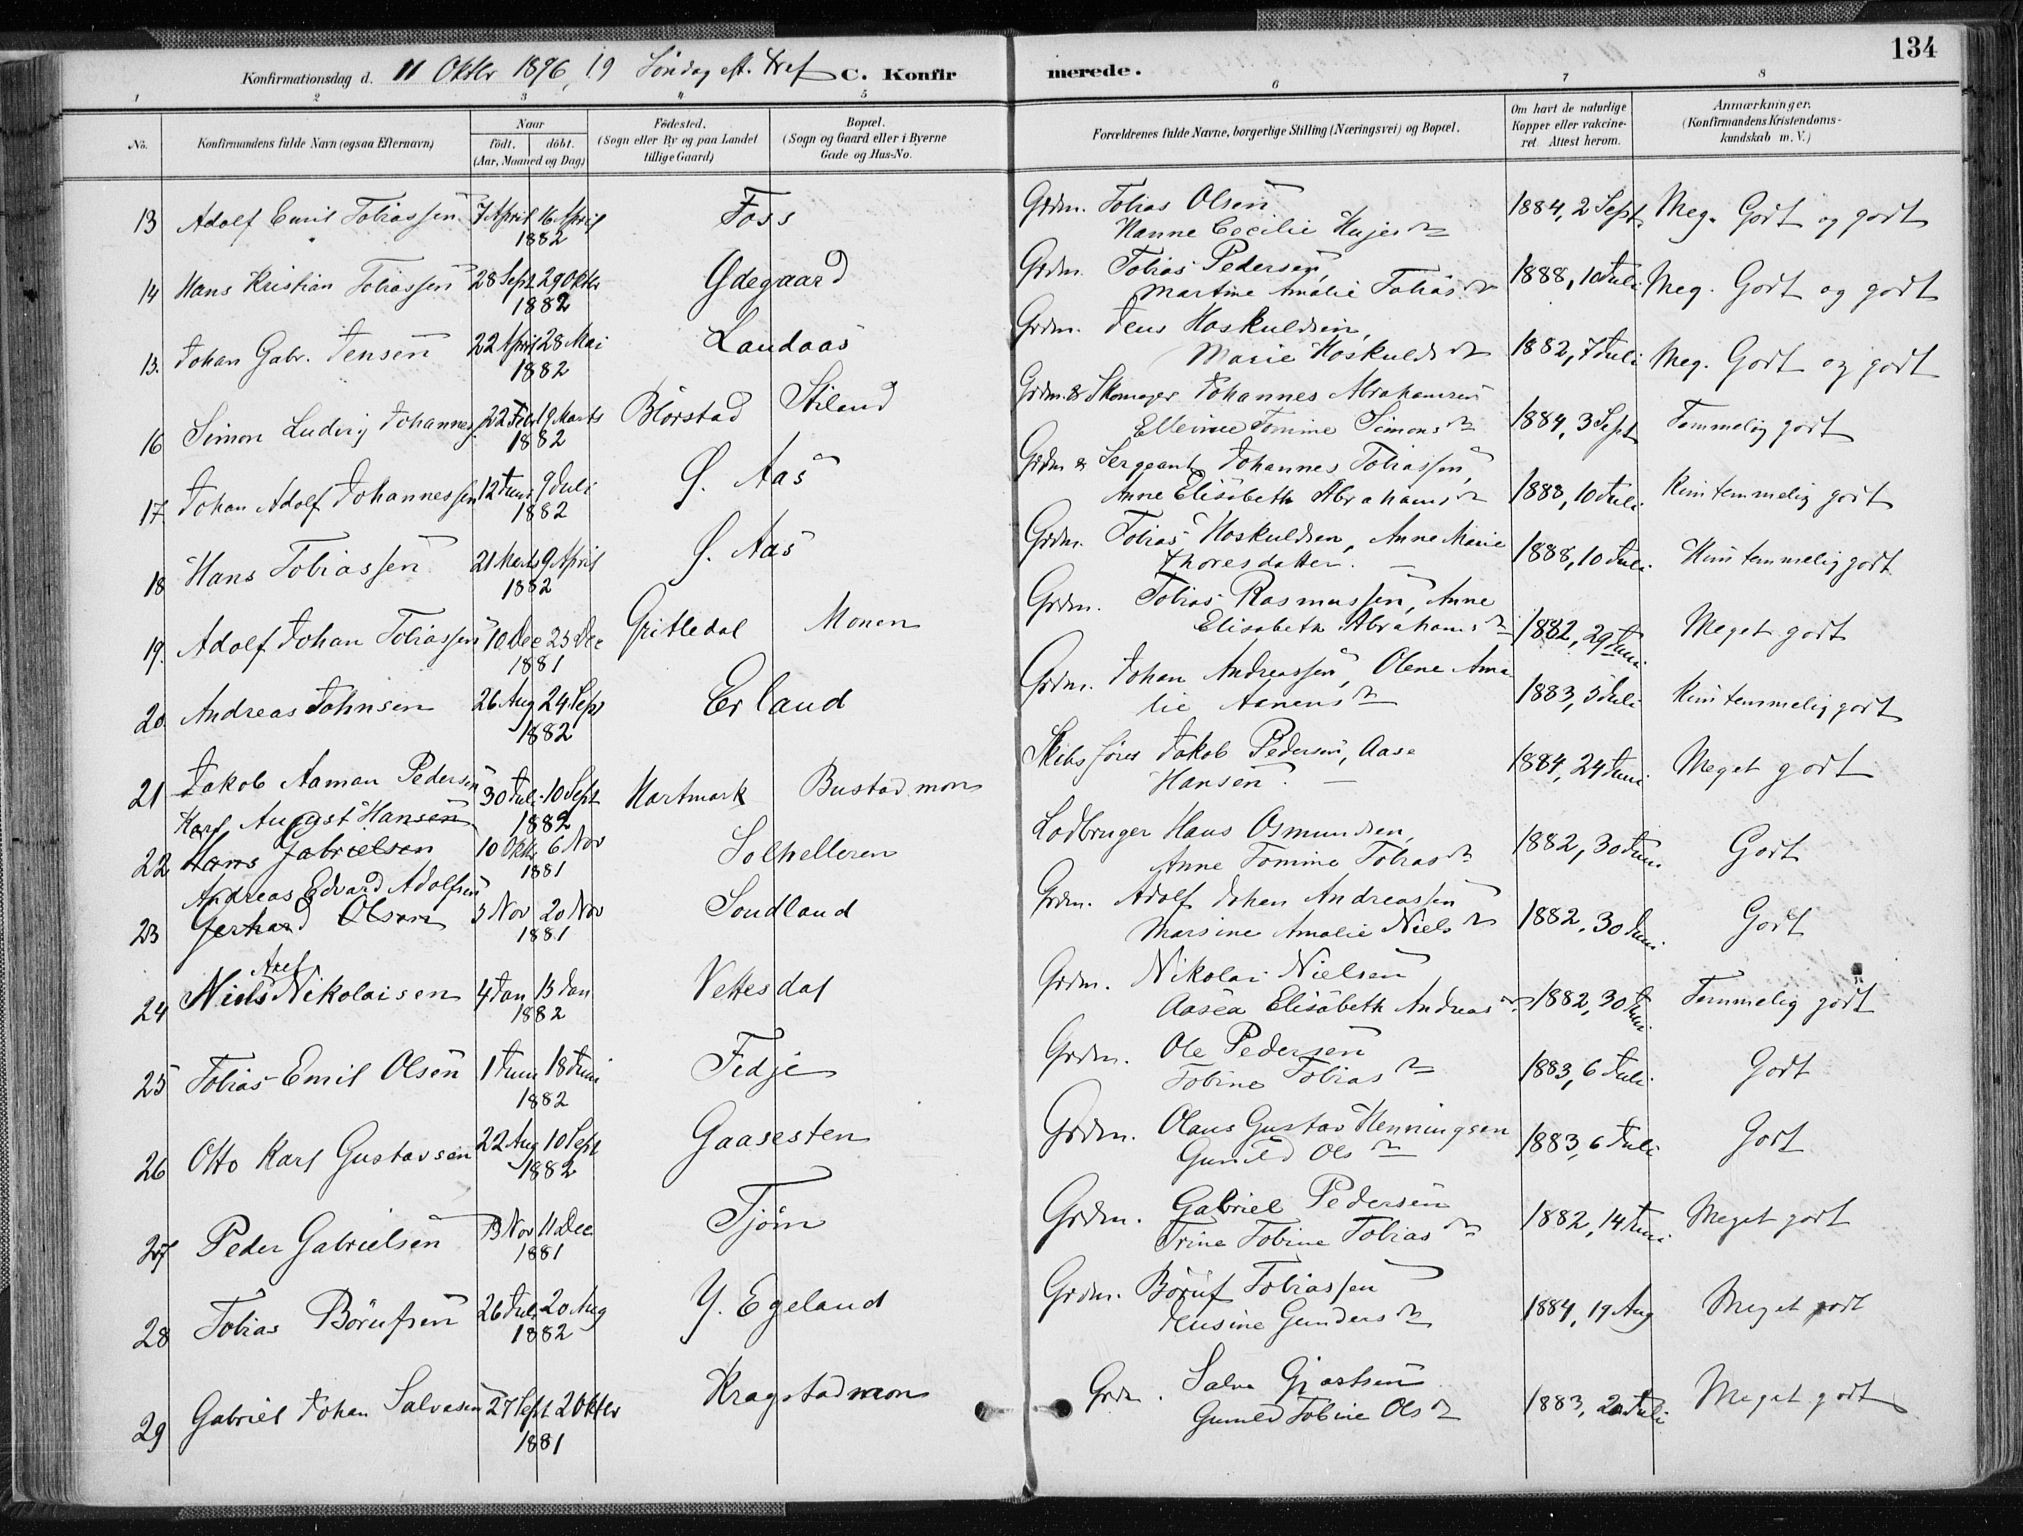 134
Konfirmationsdag d. 11 Oktbr 1896, 19 Søndag eft. Tref C. Konfirmerede.
1 2 3 4 5 6 7 8
No. Konfirmandens fulde Navn (ogsaa Efternavn) Naar födt. döbt. (Aar, Maaned og Dag) Födested. (Sogn eller By og paa Landet tillige Gaard) Bopæl. (Sogn og Gaard eller i Byerne Gade og Hus-No. Forældrenes fulde Navne, borgerlige Stilling (Næringsvei) og Bopæl. Om havt de naturlige Kopper eller vakcineret. Attest herom. Anmærkninger. (Konfirmandens Kristendomskundskab m. V.)
13 Adolf Emil Tobiassen 7 April 16 April Foss Grdm. Tobias Olsen 1884, 2 Sept. Meg. Godt og godt
1882 Hanne Cecilie
14 Hans Kristian Tobiassen 28 Sept 29 Oktbr Ødegaard Grdm. Tobias Pedersen, 1888, 10 Juli Meg. Godt og godt
1882 Martine Amalie Tobiasdr
15. Johan Gabr. Jensen 22 April 28 Mai Landaas Grdm. Jens Hoskuldsen, 1882, 7 Juli Meg. Godt og godt
1882 Marie Hoskuldsdr
16 Simon Ludvig Johannes. 22 Feb 19 Marts Blørstad Stiland Grdm. & Skomager Johannes Abrahamsen 1884, 3 Sept Temmelig godt
1882 Ellevine Tomine Simonsdr
17. Johan Adolf Johannessen 12 Juni 9 Juli Ø. Aas Grdm & Sergeant Johannes Tobiassen, 1888, 10 Juli. Kun temmelig godt
1882 Anne Elisabeth Abrahamsdr
18 Hans Tobiassen 21 Marts 9 April Ø. Aas Grdm. Tobias Hoskuldsen, Anne Marie 1888, 10 Juli. Kun temmelig godt
1882 Thoresdatter. -
19. Adolf Johan Tobiassen 10 Dec 23 Dec Gritledal Monen Grdm. Tobias Rasmussen, Anne 1882, 29 Juni Meget godt
1881 Elisabeth Abrahamsdr
20. Andreas Johnsen 26 Aug 24 Sept Erland Grdm. Johan Andreassen, Olene Ama 1883, 5 Juli Kun temmelig godt
1882 lie Aanensdr
21 Jakob Aaman Pedersen 30 Juli 10 Sept Hartmark Bustadmon Skibsfører Jakob Pedersen, Aase 1884, 24 Juni Meget godt
1882 Hansen. -
Karl August Hansen
22 Hans Gabrielsen 10 Oktb 6 Nov Solhelleren Lodbruger Hans Osmundsen, 1882, 30 Juni Godt
1881 Anne Tomine Tobiasdr
Andreas Edvard Adolfsen
23 Gerhard Olsen 3 Nov 20 Nov Sondland Grdm. Adolf Johan Andreassen 1882, 30 Juni Godt
1881 Marsine Amalie Nielsdr
Axel
24 Niels Nikolaisen 4 Jan 13 Jan Vettesdal Grdm. Nikolai Nielsen 1882, 30 Juni Temmelig godt
1882 Aasea Elisabeth Andreasdr
25 Tobias Emil Olsen 1 Juni 18 Juni Fedje Grdm. Ole Pedersen 1883, 6 Juli Godt
1882 Tobine Tobiasdr
26 Otto Karl Gustavsen 22 Aug 10 Sept Gaasesten Grdm. Olaus Gustav Henningsen 1883, 6 Juli Godt
1882 Gunild Olsdr
27 Peder Gabrielsen 13 Nov 11 Dec Tjöm Grdm. Gabriel Pedersen 1882, 14 Juni Meget godt
1881 Trine Tobine Tobiasdr
28 Tobias Börufsen 26 Juli 20 Aug Y. Egeland Grdm. Böruf Tobiassen 1884, 19 Aug Meget godt
1882 Gundersdr
29 Gabriel Johan Salvesen 27 Sept 2 Oktbr Kragstadmon Grdm. Salve Gjertsen 1883, 20 Juli Meget godt
1881 Gunild Tobine Olsdr